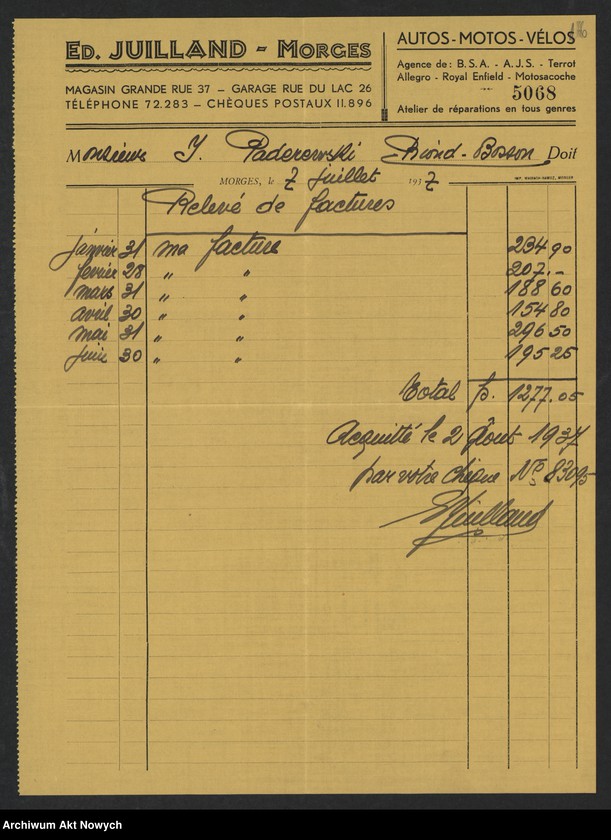 ED. JUILLAND - MORGES
MAGASIN GRANDE RUE 37 – GARAGE RUE DU LAC 26
TÉLÉPHONE 72.283 – CHÈQUES POSTAUX II.896
AUTOS-MOTOS-VÉLOS
Agence de: B.S.A. - A.J.S. - Terrot
Allegro - Royal Enfield - Motosacoche
5068
Atelier de réparations en tous genres
Monsieur I. Paderewski Riond-Bosson Doit
MORGES, le 7 juillet 1937
Relevé de factures
janvier 31 ma facture 234 90
février 28 " " 207.-
mars 31 " " 188 60
avril 30 " " 154 80
mai 31 " " 296 50
juin 30 " " 195 25
Total fr. 1277.05
Acquitté le 2 Août 1937
par votre chèque No 83095
EJuilland
Archiwum Akt Nowych